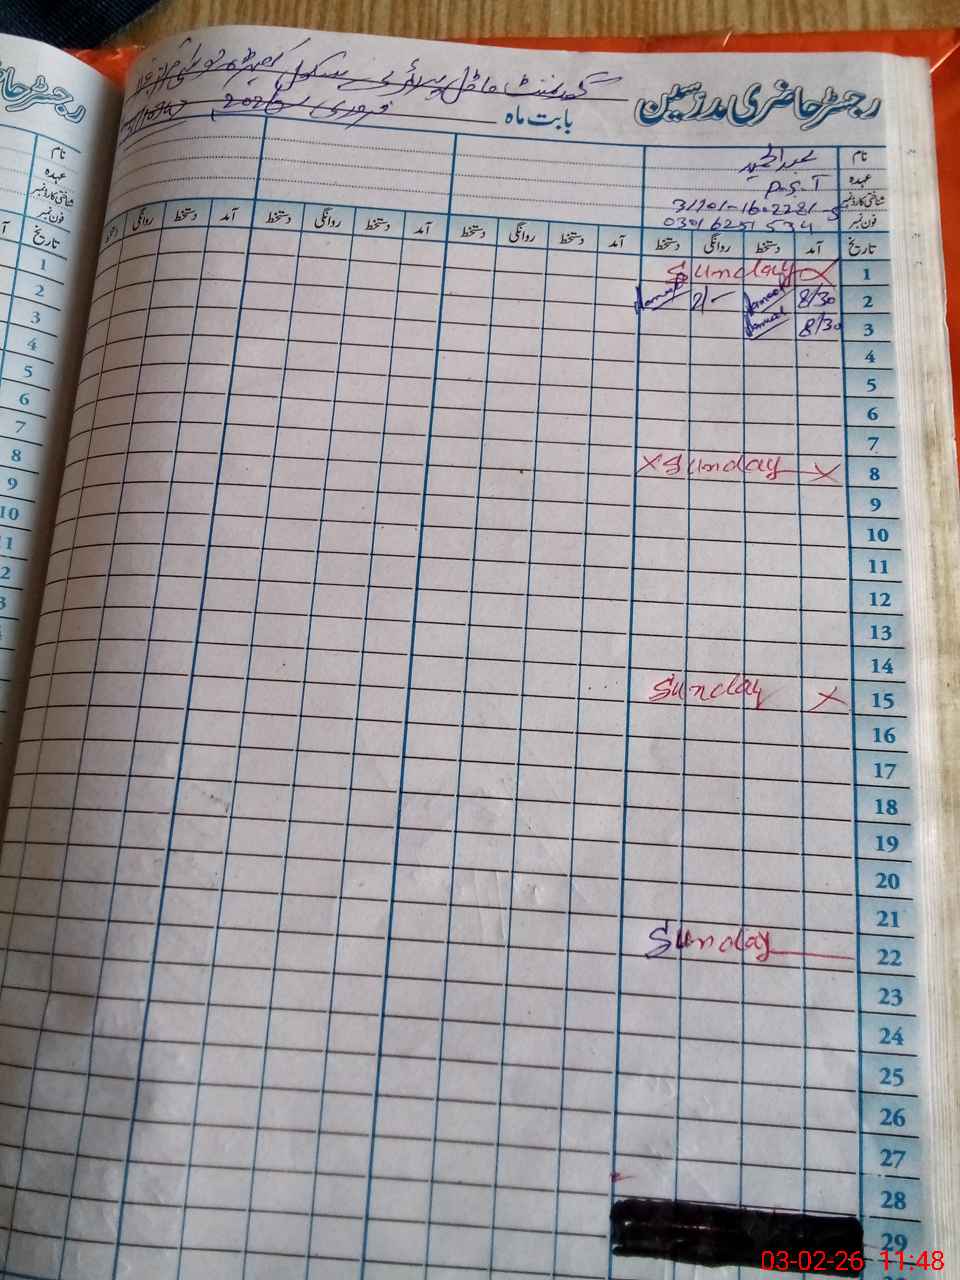 رجسٹر حاضری مدرسین
گورنمنٹ ماڈل پرائمری سکول
بابت ماہ فروری 2026
نام عبدالحمید
عہدہ P.S.T
شناختی کارڈ نمبر 31201-1602281-5
فون نمبر 03016251534
تاریخ آمد دستخط روانگی دستخط آمد دستخط روانگی دستخط آمد دستخط روانگی دستخط آمد دستخط روانگی دستخط
1 Sunday
2 8/30 2/-
3 8/30
4
5
6
7
8 Sunday
9
10
11
12
13
14
15 Sunday
16
17
18
19
20
21
22 Sunday
23
24
25
26
27
28
29
رجسٹر حا
نام
عہدہ
شناختی کارڈ نمبر
فون نمبر
تاریخ
1
2
3
4
5
6
7
8
9
10
03-02-26 11:48